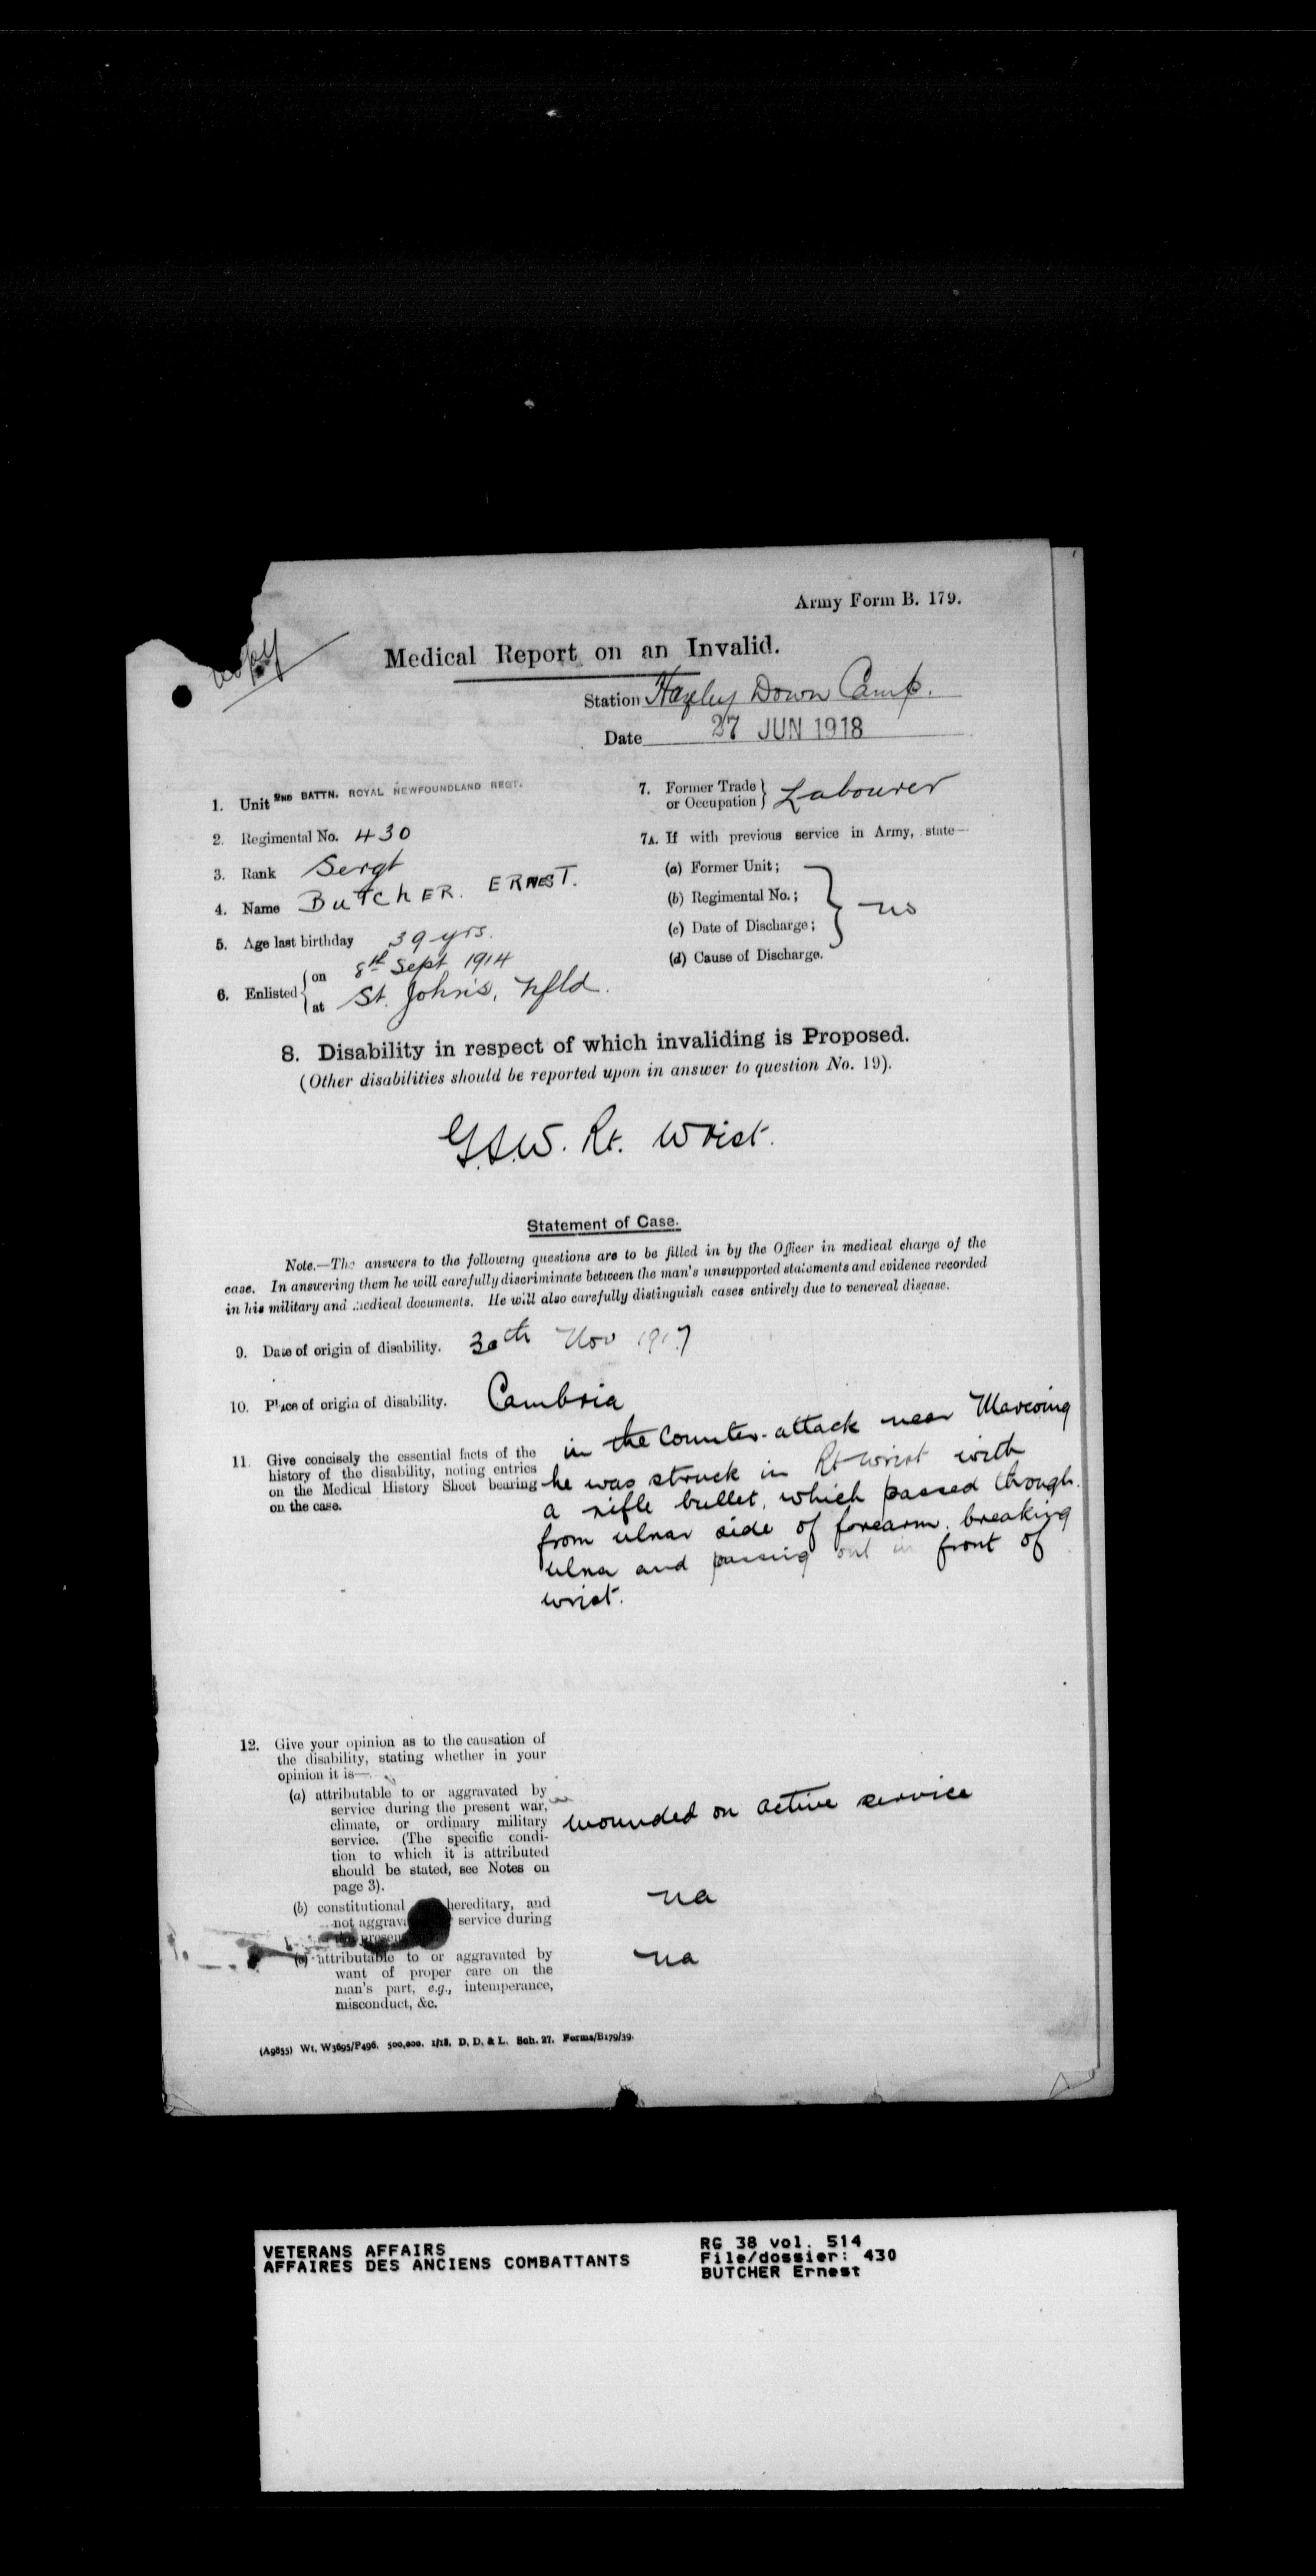 Army Form B. 179.
Copy
Medical Report on an Invalid.
Station Hazley Down Camp.
Date 27 JUN 1918
1. Unit 2ND BATTN. ROYAL NEWFOUNDLAND REGT.
2. Regimental No. 430
3. Rank Sergt
4. Name BUTCHER. ERNEST.
5. Age last birthday 39 yrs.
6. Enlisted { on 8th Sept 1914
at St. John's, Nfld.
7. Former Trade or Occupation } Labourer
7A. If with previous service in Army, state—
(a) Former Unit;
(b) Regimental No.;
(c) Date of Discharge;
(d) Cause of Discharge.
} no
8. Disability in respect of which invaliding is Proposed.
(Other disabilities should be reported upon in answer to question No. 19).
G.S.W. Rt. Wrist.
Statement of Case.
Note.—The answers to the following questions are to be filled in by the Officer in medical charge of the
case. In answering them he will carefully discriminate between the man's unsupported statements and evidence recorded
in his military and medical documents. He will also carefully distinguish cases entirely due to venereal disease.
9. Date of origin of disability. 30th Nov 1917
10. Place of origin of disability. Cambria
11. Give concisely the essential facts of the
history of the disability, noting entries
on the Medical History Sheet bearing
on the case.
in the Counter-attack near Marcoing
he was struck in Rt wrist with
a rifle bullet, which passed though.
from ulnar side of forearm. breaking
ulna and passing out in front of
wrist.
12. Give your opinion as to the causation of
the disability, stating whether in your
opinion it is—
(a) attributable to or aggravated by
service during the present war,
climate, or ordinary military
service. (The specific condi-
tion to which it is attributed
should be stated, see Notes on
page 3).
wounded on active service
(b) constitutional hereditary, and
not aggrava service during
presen
na
(c) attributable to or aggravated by
want of proper care on the
man's part, e.g., intemperance,
misconduct, &c.
na
(A9855) Wt. W3695/P496. 500,000. 1/18. D. D. & L. Sch. 27. Forms/B179/39.
VETERANS AFFAIRS
AFFAIRES DES ANCIENS COMBATTANTS
RG 38 vol. 514
File/dossier: 430
BUTCHER Ernest